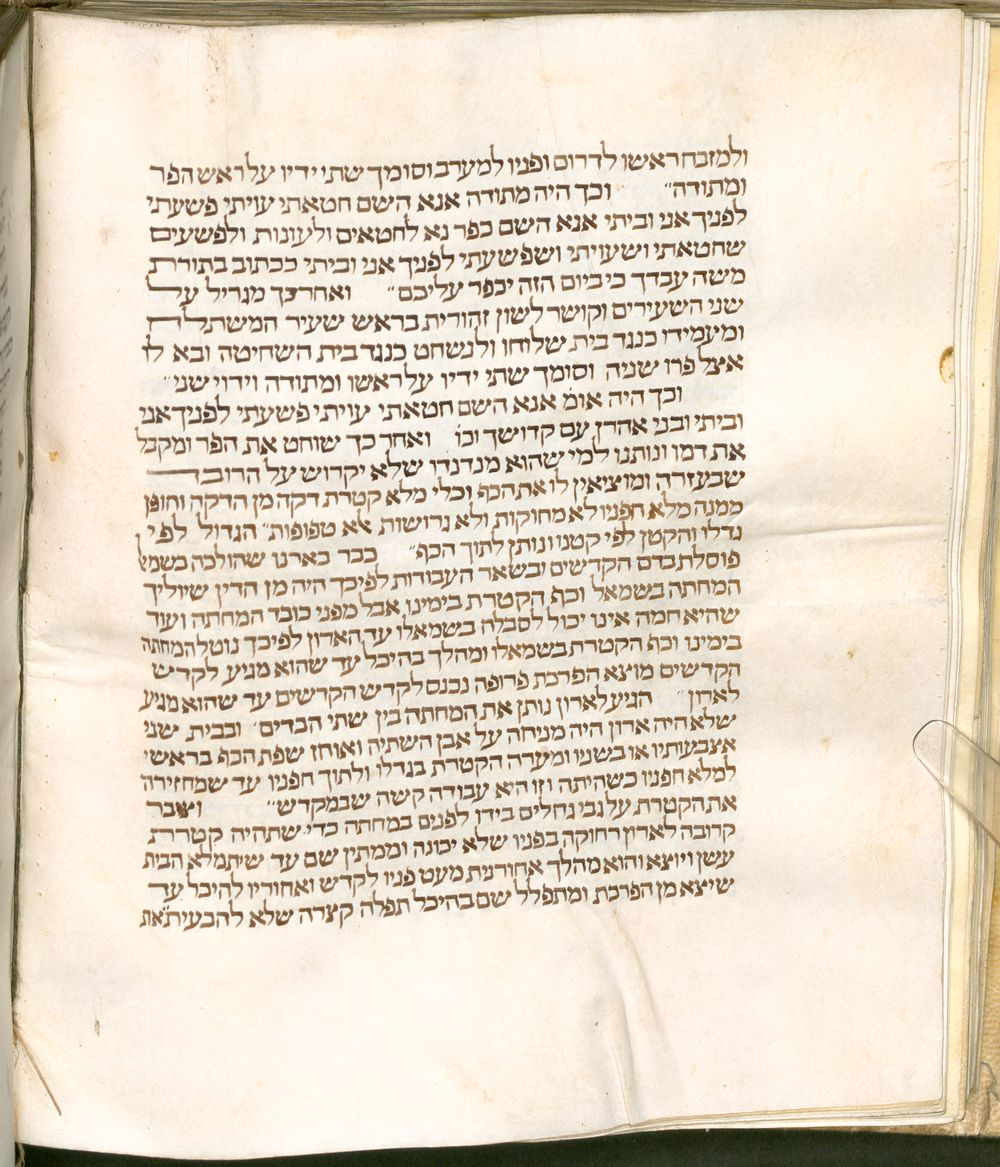 ולמזבח ראשו לדרום ופניו למערב וסומך שתי ידיו על ראש הפר
ומתודה״ וכך היה מתודה אנא השם חטאתי עויתי פשעתי
לפניך אני וביתי אנא השם כפר נא לחטאים ולעונות ולפשעים
שחטאתי ושעויתי ושפשעתי לפניך אני וביתי ככתוב בתורת
משה עבדך כי ביום הזה יכפר עליכם״ ואחר כך מגריל על
שני השעירים וקושר לשון זהורית בראש שעיר המשתלח
ומעמידו כנגד בית שלוחו ולנשחט כנגד בית השחיטה ובא לו
אצל פרו שניה וסומך שתי ידיו על ראשו ומתודה וידוי שני״
וכך היה אומ׳ אנא השם חטאתי עויתי פשעתי לפניך אני
וביתי ובני אהרן עם קדושך וכו׳ ואחר כך שוחט את הפר ומקבל
את דמו ונותנו למי שהוא מנדנדו שלא יקרוש על הרובד
שבעזרה ומוציאין לו את הכף וכלי מלא קטרת דקה מן הדקה וחופן
ממנה מלא חפניו לא מחוקות ולא גדושות אלא טפופות״ הגדול לפי
גדלו והקטן לפי קטנו ונותן לתוך הכף״ כבר בארנו שהולכה בשמאל
פוסלת בדם הקדשים ובשאר העבודות לפיכך היה מן הדין שיוליך
המחתה בשמאל וכף הקטרת בימינו, אבל מפני כובד המחתה ועוד
שהיא חמה אינו יכול לסבלה בשמאלו עד הארון לפיכך נוטל המחתה
בימינו וכף הקטרת בשמאלו ומהלך בהיכל עד שהוא מגיע לקדש
הקדשים מוצא הפרכת פרופה נכנס לקדש הקדשים עד שהוא מגיע
לארון״ הגיע לארון נותן את המחתה בין שתי הבדים״ ובבית שני
שלא היה ארון היה מניחה על אבן השתיה ואוחז שפת הכף בראשי
אצבעותיו או בשניו ומערה הקטרת בגדלו ולתוך חפניו עד שמחזירה
למלא חפניו כשהיתה וזו היא עבודה קשה שבמקדש״ וצובר
את הקטרת על גבי גחלים בידו לפנים במחתה כדי שתהיה קטרת
קרובה לארון רחוקה בפניו שלא יכוה וממתין שם עד שיתמלא הבית
עשן ויוצא והוא מהלך אחורנית מעט פניו לקדש ואחוריו להיכל עד
שיצא מן הפרכת ומתפלל שם בהיכל תפלה קצרה שלא להבעית את